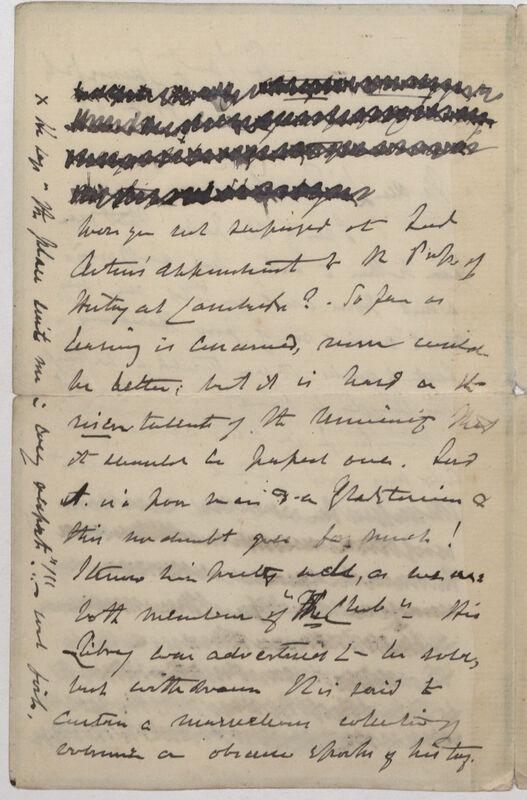 Were you not surprised at Lord
Acton's appointment to the Profs. of
History at Cambridge? - So far as
learning is concerned, none could
be better; but it is hard on the
risen talents of the University that
it should be passed over. Lord
A. is a poor man & a Gladstonian &
this no doubt goes for much!
I know him pretty well, as we are
both members of "The Club". His
Library was advertised to be sold,
but withdrawn. It is said to
contain a marvellous collection of
volumes on obscure epochs of history.
x He says "the place suits me in every respect"!!! -